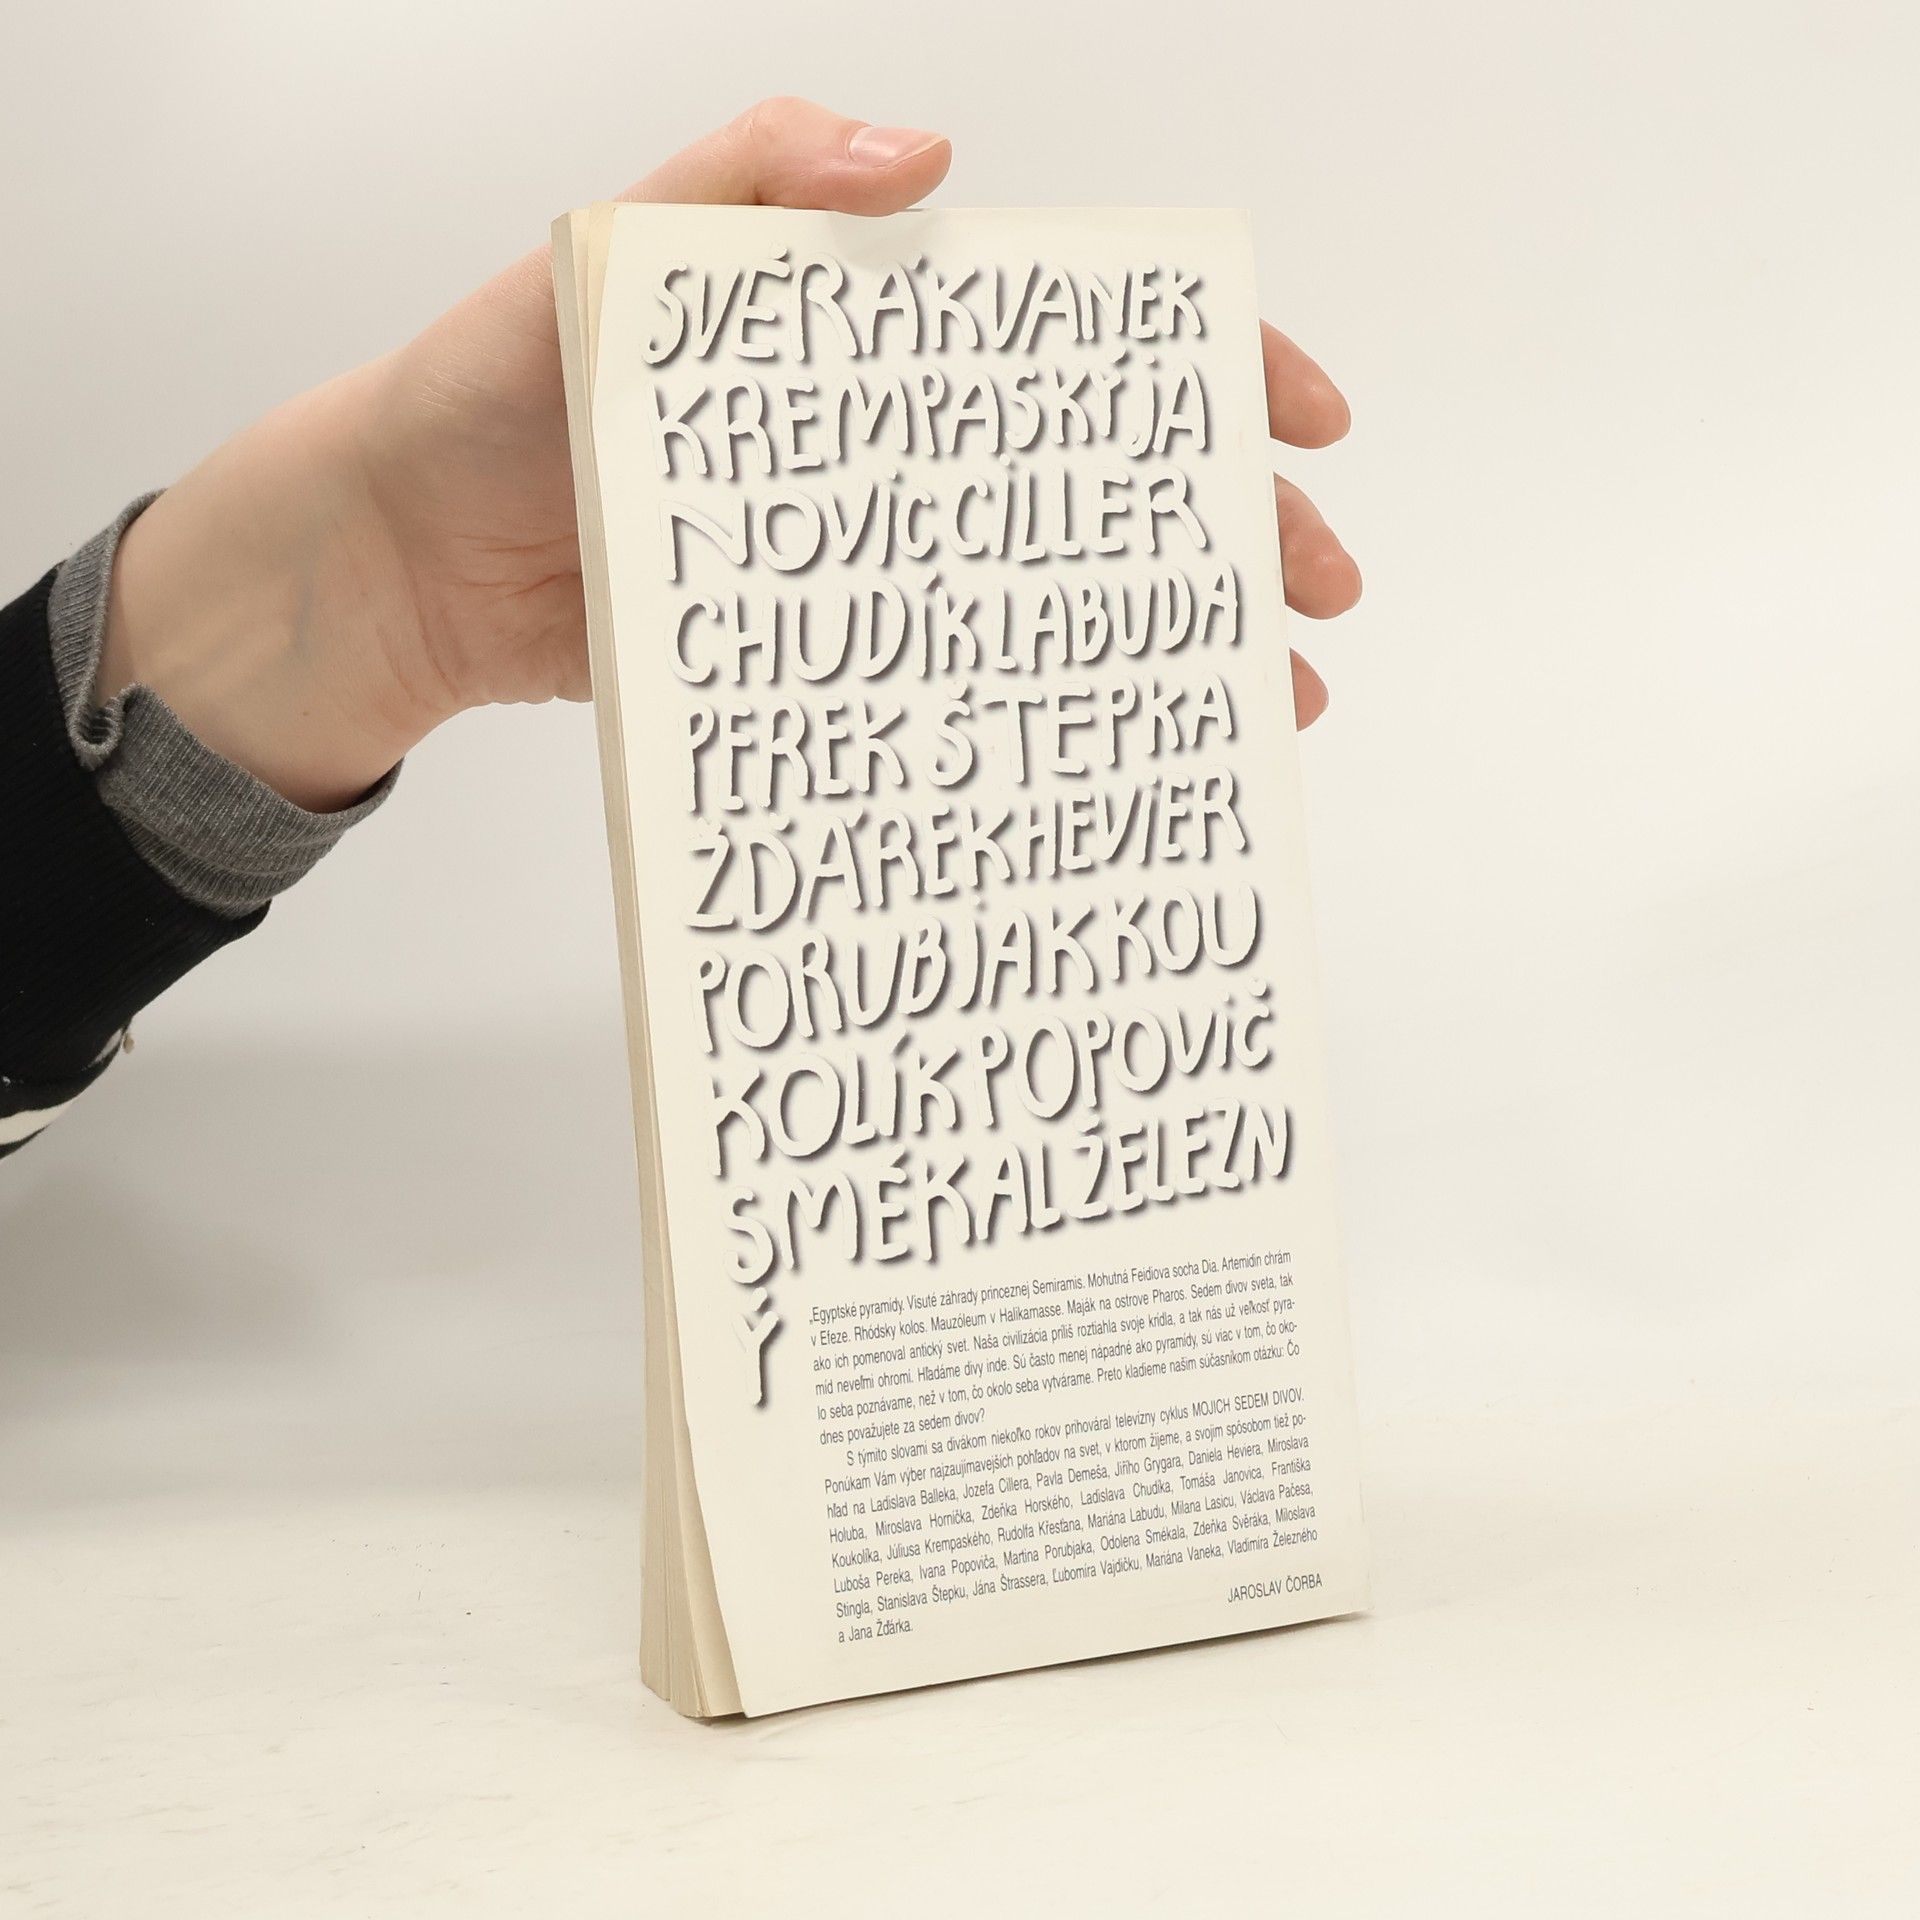 SVĚRÁKVANEK
KREMPASKÝJA
NOVICCILLER
CHUDÍKLABUDA
PEREKŠTEPKA
ŽĎÁREKHEVIER
PORUBJAKKOU
KOLÍKPOPOVIČ
SMÉKALŽELEZN
Ý
„Egyptské pyramídy. Visuté záhrady princeznej Semiramis. Mohutná Feidiova socha Dia. Artemidin chrám
v Efeze. Rhódsky kolos. Mauzóleum v Halikarnasse. Maják na ostrove Pharos. Sedem divov sveta, tak
ako ich pomenoval antický svet. Naša civilizácia príliš roztiahla svoje krídla, a tak nás už veľkosť pyra-
míd neveľmi ohromí. Hľadáme divy inde. Sú často menej nápadné ako pyramídy, sú viac v tom, čo oko-
lo seba poznávame, než v tom, čo okolo seba vytvárame. Preto kladieme našim súčasníkom otázku: Čo
dnes považujete za sedem divov?
S týmito slovami sa divákom niekoľko rokov prihováral televízny cyklus MOJICH SEDEM DIVOV.
Ponúkam Vám výber najzaujímavejších pohľadov na svet, v ktorom žijeme, a svojim spôsobom tiež po-
hľad na Ladislava Balleka, Jozefa Cillera, Pavla Demeša, Jiřího Grygara, Daniela Heviera, Miroslava
Holuba, Miroslava Horníčka, Zdeňka Horského, Ladislava Chudíka, Tomáša Janovica, Františka
Koukolíka, Júliusa Krempaského, Rudolfa Křesťana, Mariána Labudu, Milana Lasicu, Václava Pačesa,
Luboša Pereka, Ivana Popoviča, Martina Porubjaka, Odolena Smékala, Zdeňka Svěráka, Miloslava
Stingla, Stanislava Štepku, Jána Štrassera, Ľubomíra Vajdičku, Mariána Vaneka, Vladimíra Železného
a Jana Žďárka.
JAROSLAV ČORBA